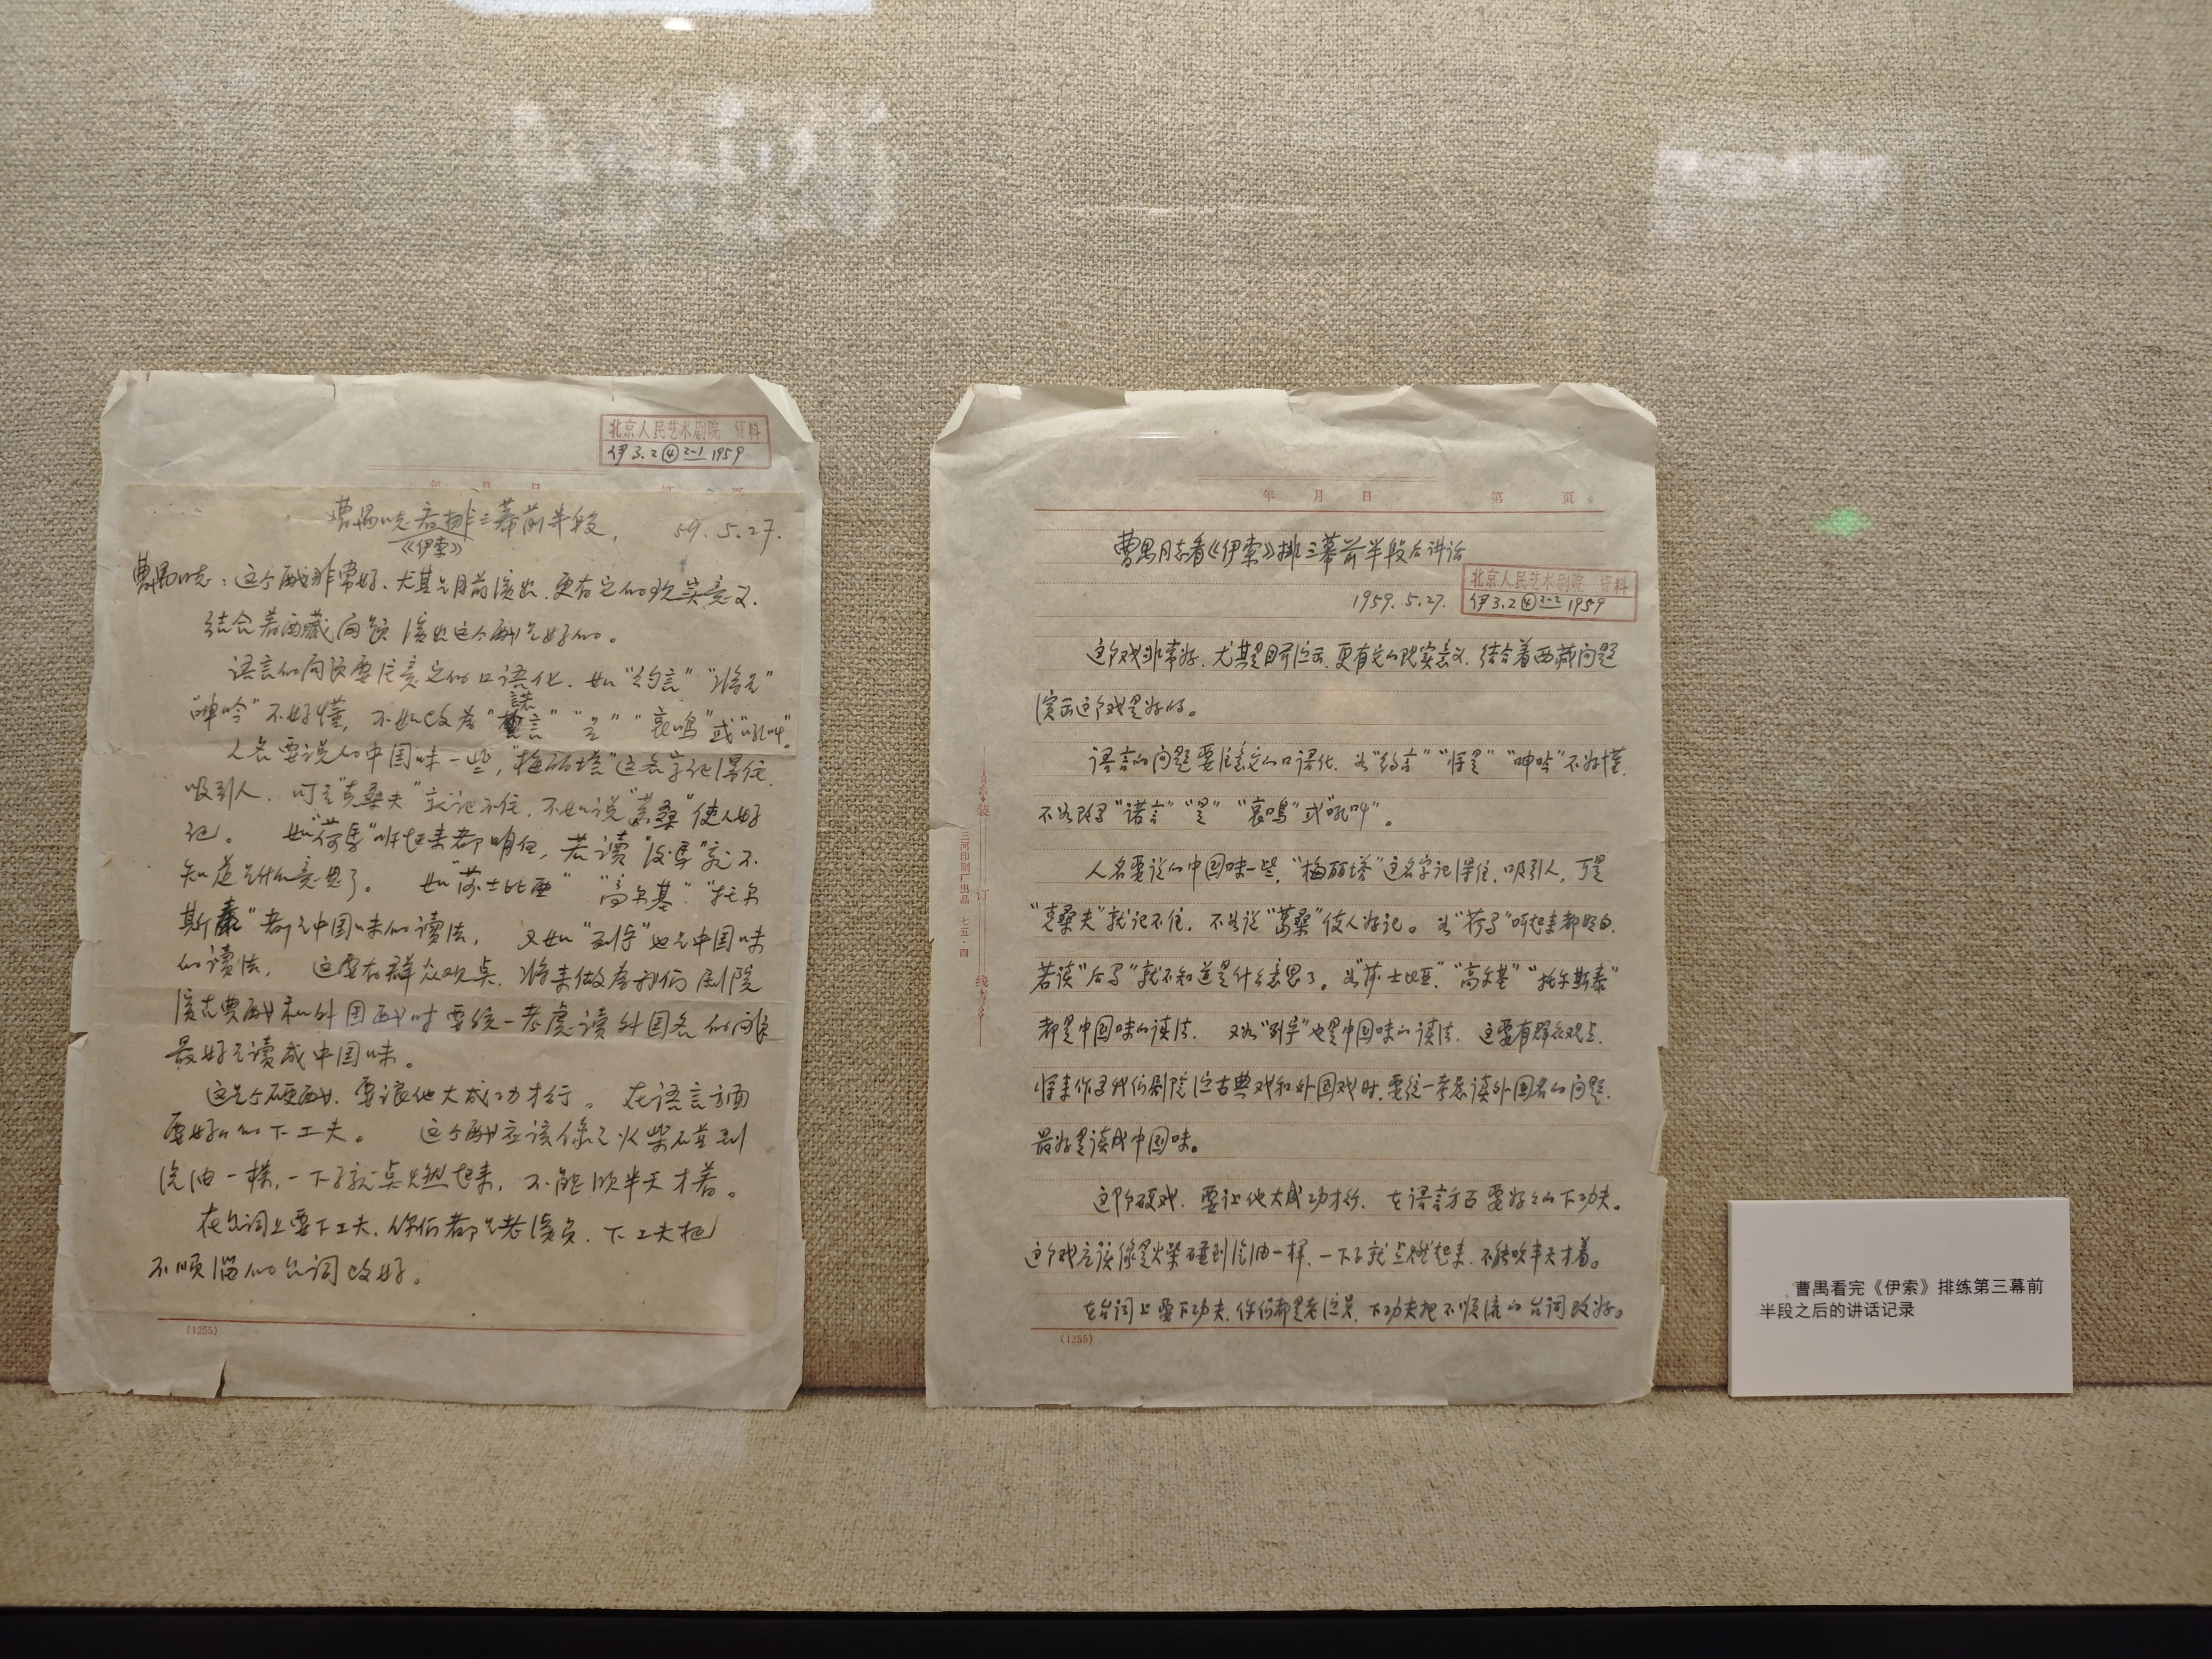 北京人民艺术剧院 资料
伊3.2④2-1 1959
年 月 日 第 页
曹禺同志看排三幕前半段, 59.5.27.
《伊索》
曹禺同志:这个戏非常好、尤其是目前演出,更有它的现实意义.
结合着西藏问题演出这个戏是好的。
语言的问题要注意它的口语化、如“约言”“将是”
“呻吟”不好懂,不如改为“諾言”“是”“哀鸣”或“吼叫”。
人名要说的中国味一些,“梅丽塔”这名字记得住,
吸引人,可是“克桑夫”就记不住,不如说“葛桑”使人好
记。 如“荷马”听起来都明白,若读“后马”就不
知道是什么意思了。 如“莎士比亚”“高尔基”“托尔
斯泰”都是中国味的读法, 又如“列宁”也是中国味
的读法, 这要有群众观点,将来做为我们剧院
演古典戏和外国戏时要统一考虑读外国名的问题
最好是读成中国味。
这是个硬戏,要让他大成功才行。 在语言方面
要好好的下工夫。 这个戏应该像是火柴碰到
汽油一样,一下子就点燃起来,不能吹半天才着。
在台词上要下工夫,你们都是老演员,下工夫把
不顺溜的台词改好。
(1255)
年 月 日 第 页
曹禺同志看《伊索》排三幕前半段后讲话
北京人民艺术剧院 资料
1959.5.27.
伊3.2④2-2 1959
这个戏非常好,尤其是目前演出,更有它的现实意义,结合着西藏问题
演出这个戏是好的。
语言的问题要注意它的口语化,如“约言”“将是”“呻吟”不好懂,
不如改为“诺言”“是”“哀鸣”或“吼叫”。
人名要说的中国味一些,“梅丽塔”这名字记得住,吸引人,可是
“克桑夫”就记不住,不如说“葛桑”使人好记。如“荷马”听起来都明白,
若读“后马”就不知道是什么意思了。如“莎士比亚”,“高尔基”“托尔斯泰”
都是中国味的读法, 又如“列宁”也是中国味的读法, 这要有群众观点,
将来作为我们剧院演古典戏和外国戏时,要统一考虑读外国名的问题,
最好是读成中国味。
这个硬戏,要让他大成功才行,在语言方面要好好的下功夫。
这个戏应该像是火柴碰到汽油一样,一下子就点燃起来,不能吹半天才着。
在台词上要下功夫,你们都是老演员,下功夫把不顺流的台词改好。
(1255)
装
订
线
三河印刷厂出品 七五·四
曹禺看完《伊索》排练第三幕前
半段之后的讲话记录